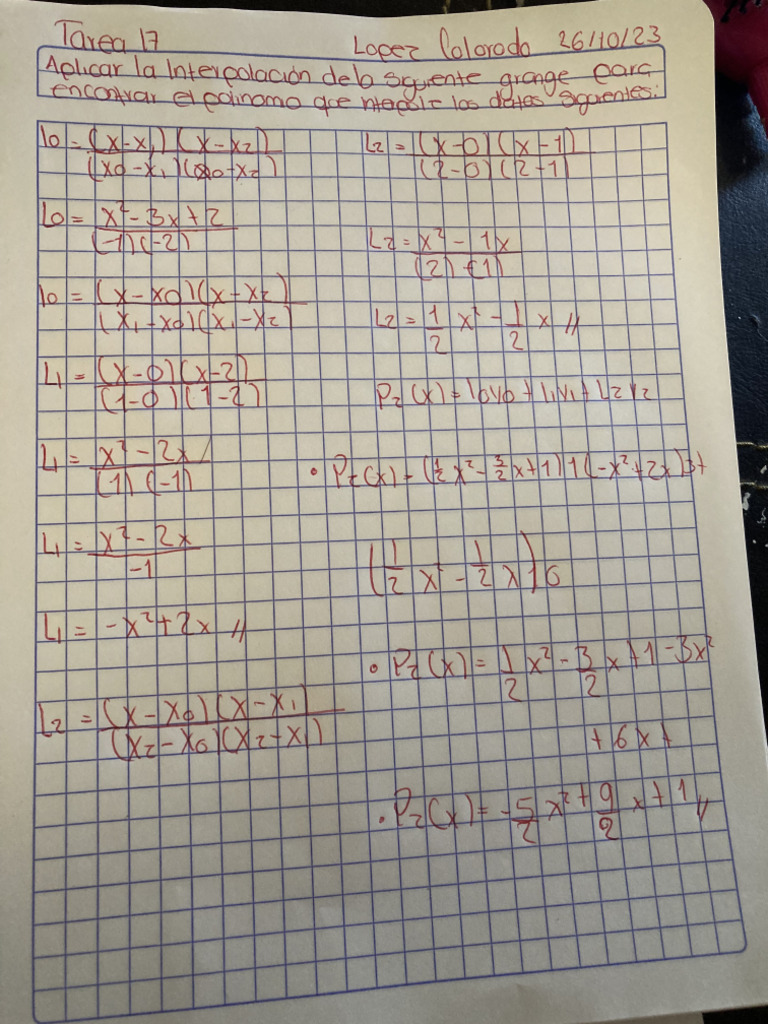 Tarea 17 Lopez Colorado 26/10/23
Aplicar la Interpolación de la siguiente grange para
encontrar el polinomo que los datos siguientes:
l0 = (x-x1)(x-x2)
(x0-x1)(x0-x2)
L0 = x²-3x+2
(-1)(-2)
l0 = (x-x0)(x-x2)
(x1-x0)(x1-x2)
L1 = (x-0)(x-2)
(1-0)(1-2)
L1 = x²-2x
(1)(-1)
L1 = x²-2x
-1
L1 = -x²+2x //
L2 = (x-x0)(x-x1)
(x2-x0)(x2-x1)
L2 = (x-0)(x-1)
(2-0)(2-1)
L2 = x²-1x
(2)(1)
L2 = 1/2 x² - 1/2 x //
P2(x) = l0y0 + L1y1 + L2y2
• P2(x) = (1/2 x² - 3/2 x + 1) 1 (-x²+2x)3+
(1/2 x² - 1/2 x) 6
• P2(x) = 1/2 x² - 3/2 x + 1 - 3x²
+ 6x +
• P2(x) = -5/2 x² + 9/2 x + 1 //